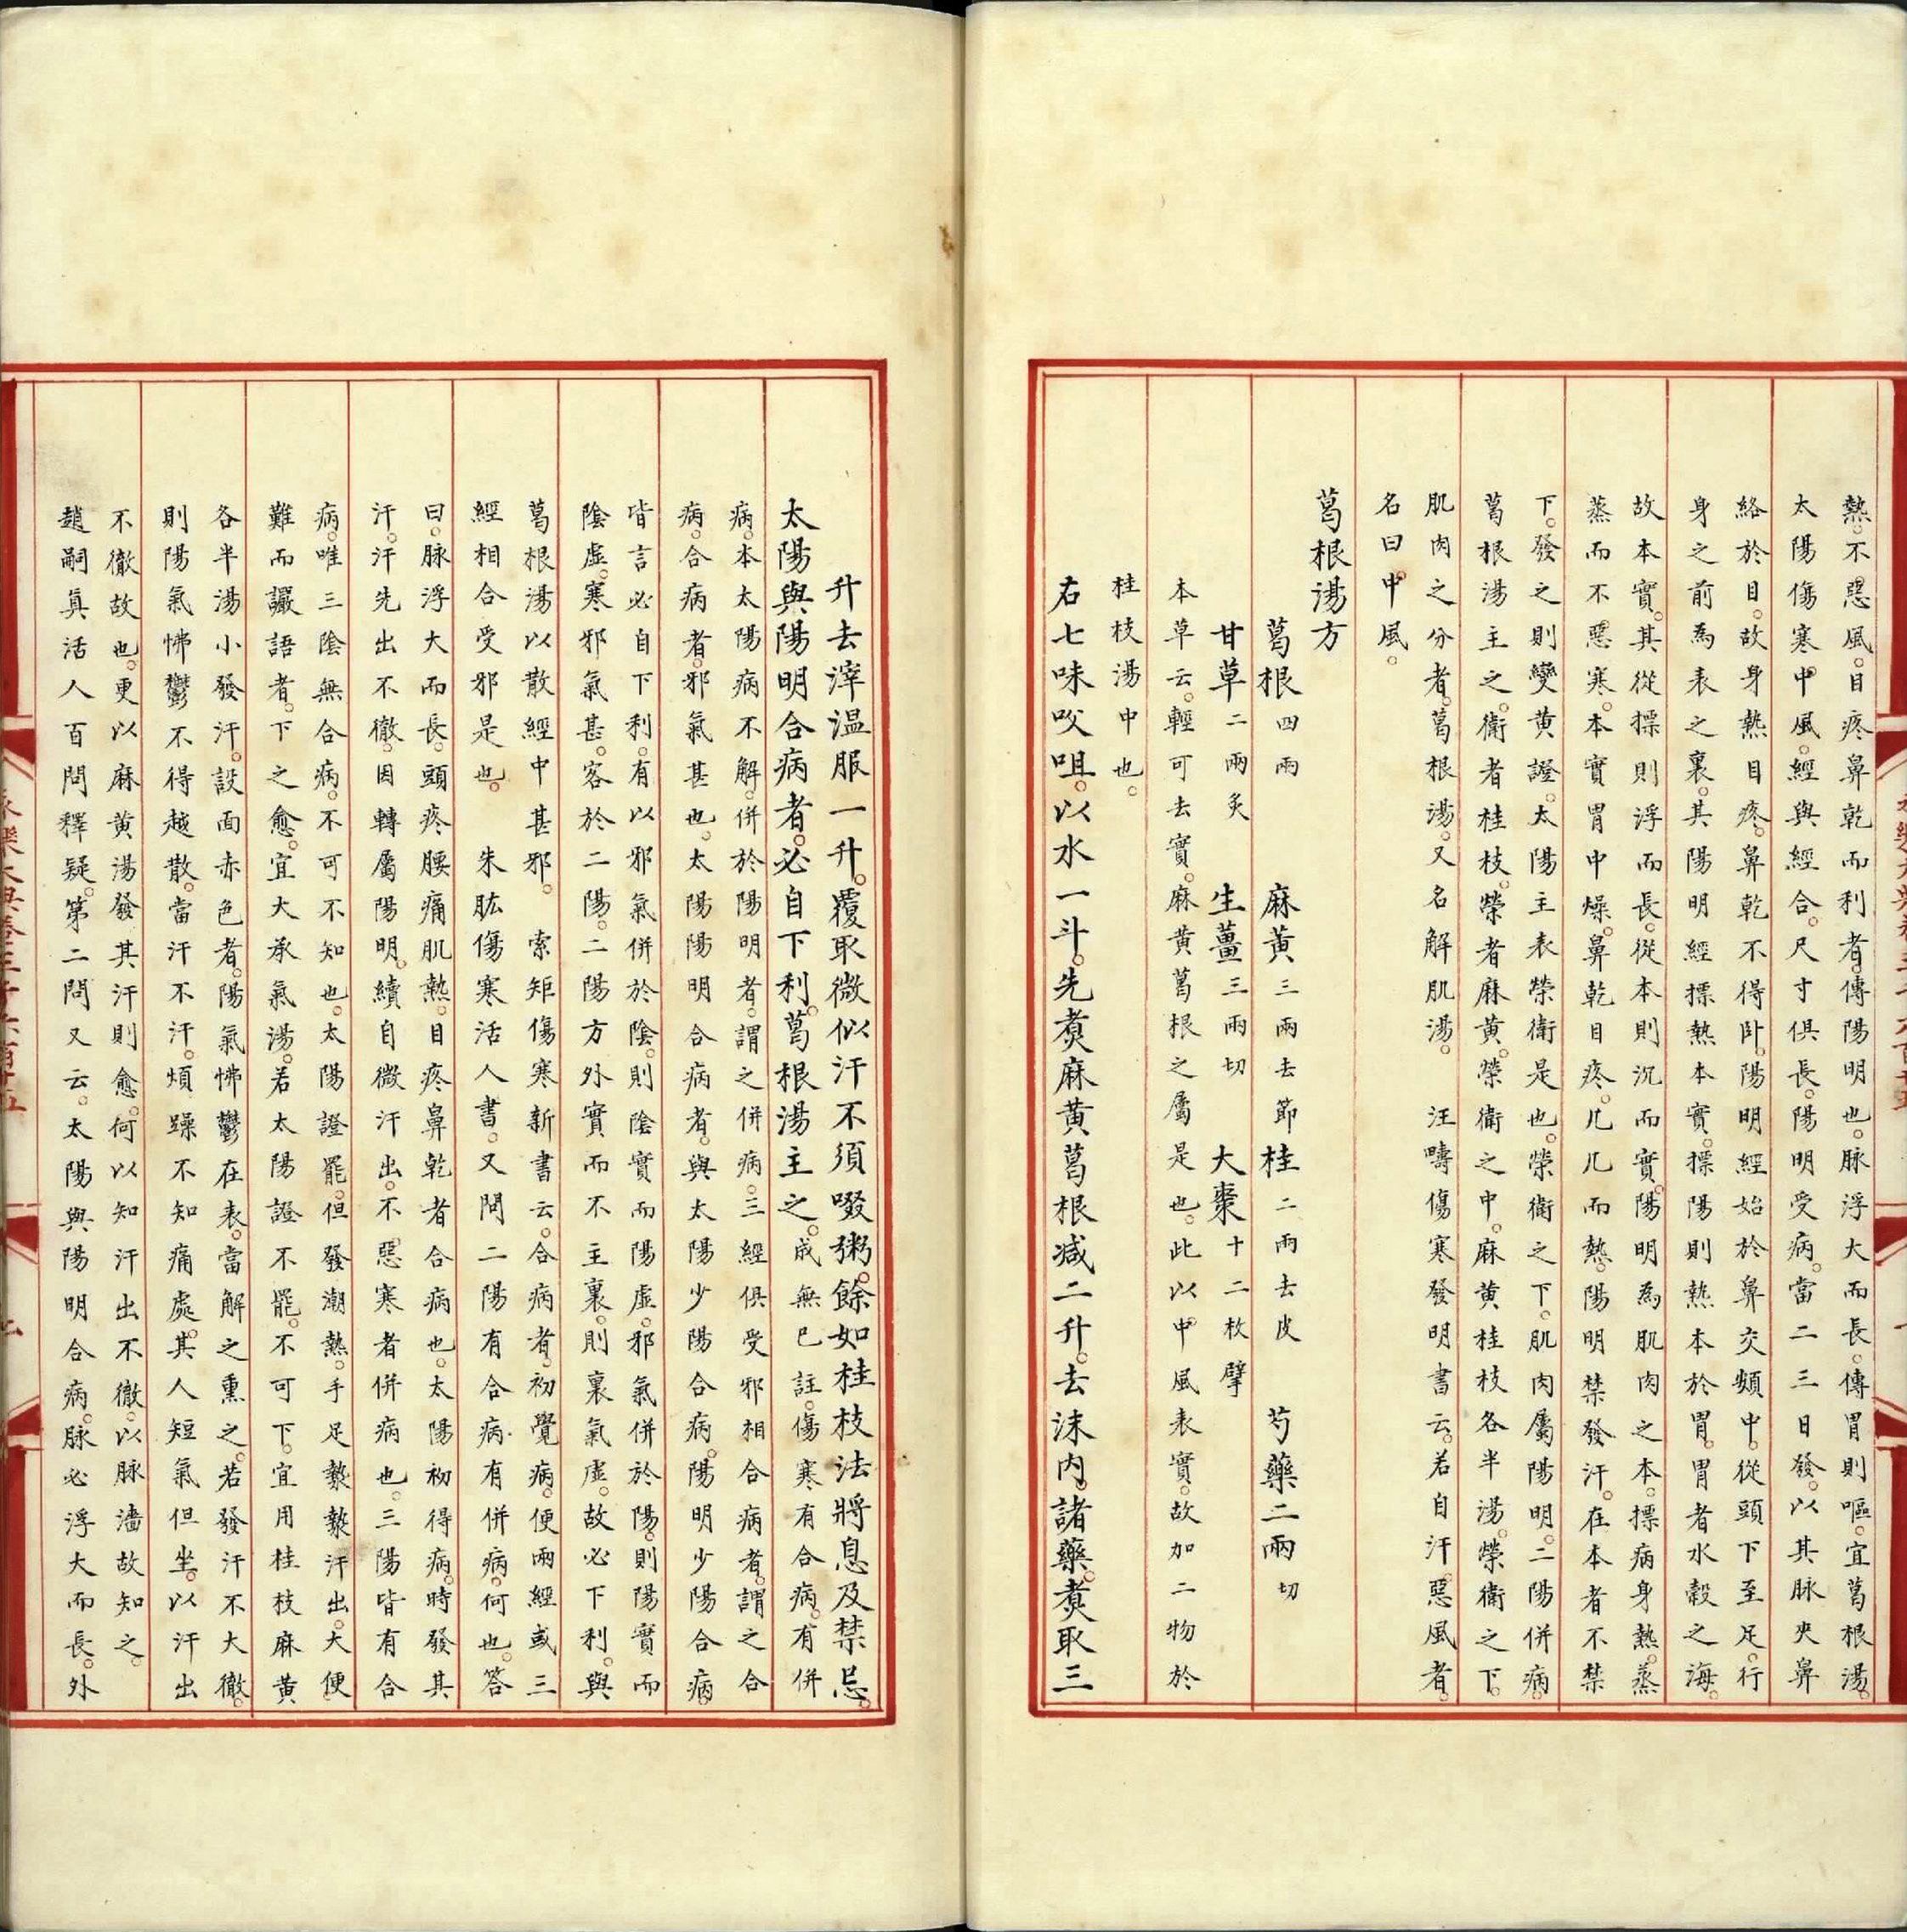 熱。不惡風。目疼鼻乾而利者。傳陽明也。脉浮大而長。傳胃則嘔。宜葛根湯。
太陽傷寒中風。經與經合。尺寸俱長。陽明受病。當二三日發。以其脉夾鼻
絡於目。故身熱目疼。鼻乾不得卧。陽明經始於鼻交頞中。從頭下至足。行
身之前為表之裏。其陽明經摽熱本實。摽陽則熱本於胃。胃者水穀之海。
故本實。其從摽則浮而長。從本則沉而實。陽明為肌肉之本。摽病身熱。蒸
蒸而不惡寒。本實胃中燥。鼻乾目疼。几几而熱。陽明禁發汗。在本者不禁
下。發之則變黄證。太陽主表榮衛是也。榮衛之下。肌肉屬陽明。二陽併病。
葛根湯主之。衛者桂枝。榮者麻黄。榮衛之中。麻黄桂枝各半湯。榮衛之下。
肌肉之分者。葛根湯。又名解肌湯。 汪疇傷寒發明書云。若自汗惡風者。
名曰中風。
葛根湯方
葛根四兩 麻黄三兩去節 桂二兩去皮 芍藥二兩切
甘草二兩炙 生薑三兩切 大棗十二枚擘
本草云。輕可去實。麻黄葛根之屬是也。此以中風表實。故加二物於
桂枝湯中也。
右七味㕮咀。以水一斗。先煑麻黄葛根减二升。去沫内諸藥。煑取三
升去滓温服一升。覆取微似汗不須啜粥。餘如桂枝法將息及禁忌。
太陽與陽明合病者。必自下利。葛根湯主之。成無已註。傷寒有合病。有併
病。本太陽病不解。併於陽明者。謂之併病。三經俱受邪相合病者。謂之合
病。合病者。邪氣甚也。太陽陽明合病者。與太陽少陽合病。陽明少陽合病。
皆言必自下利。有以邪氣併於陰。則陰實而陽虛。邪氣併於陽。則陽實而
陰虛。寒邪氣甚。客於二陽。二陽方外實而不主裏。則裏氣虛。故必下利。與
葛根湯以散經中甚邪。 索矩傷寒新書云。合病者。初覺病。便兩經或三
經相合受邪是也。 朱肱傷寒活人書。又問二陽有合病。有併病。何也。答
曰。脉浮大而長。頭疼腰痛肌熱。目疼鼻乾者合病也。太陽初得病。時發其
汗。汗先出不徹。因轉屬陽明。續自微汗出。不惡寒者併病也。三陽皆有合
病。唯三陰無合病。不可不知也。太陽證罷。但發潮熱。手足漐漐汗出。大便
難而讝語者。下之愈。宜大承氣湯。若太陽證不罷。不可下。宜用桂枝麻黄
各半湯小發汗。設面赤色者。陽氣怫鬱在表。當解之熏之。若發汗不大徹。
則陽氣怫鬱不得越散。當汗不汗。煩躁不知痛處。其人短氣但坐。以汗出
不徹故也。更以麻黄湯發其汗則愈。何以知汗出不徹。以脉濇故知之。
趙嗣真活人百問釋疑。第二問又云。太陽與陽明合病。脉必浮大而長。外